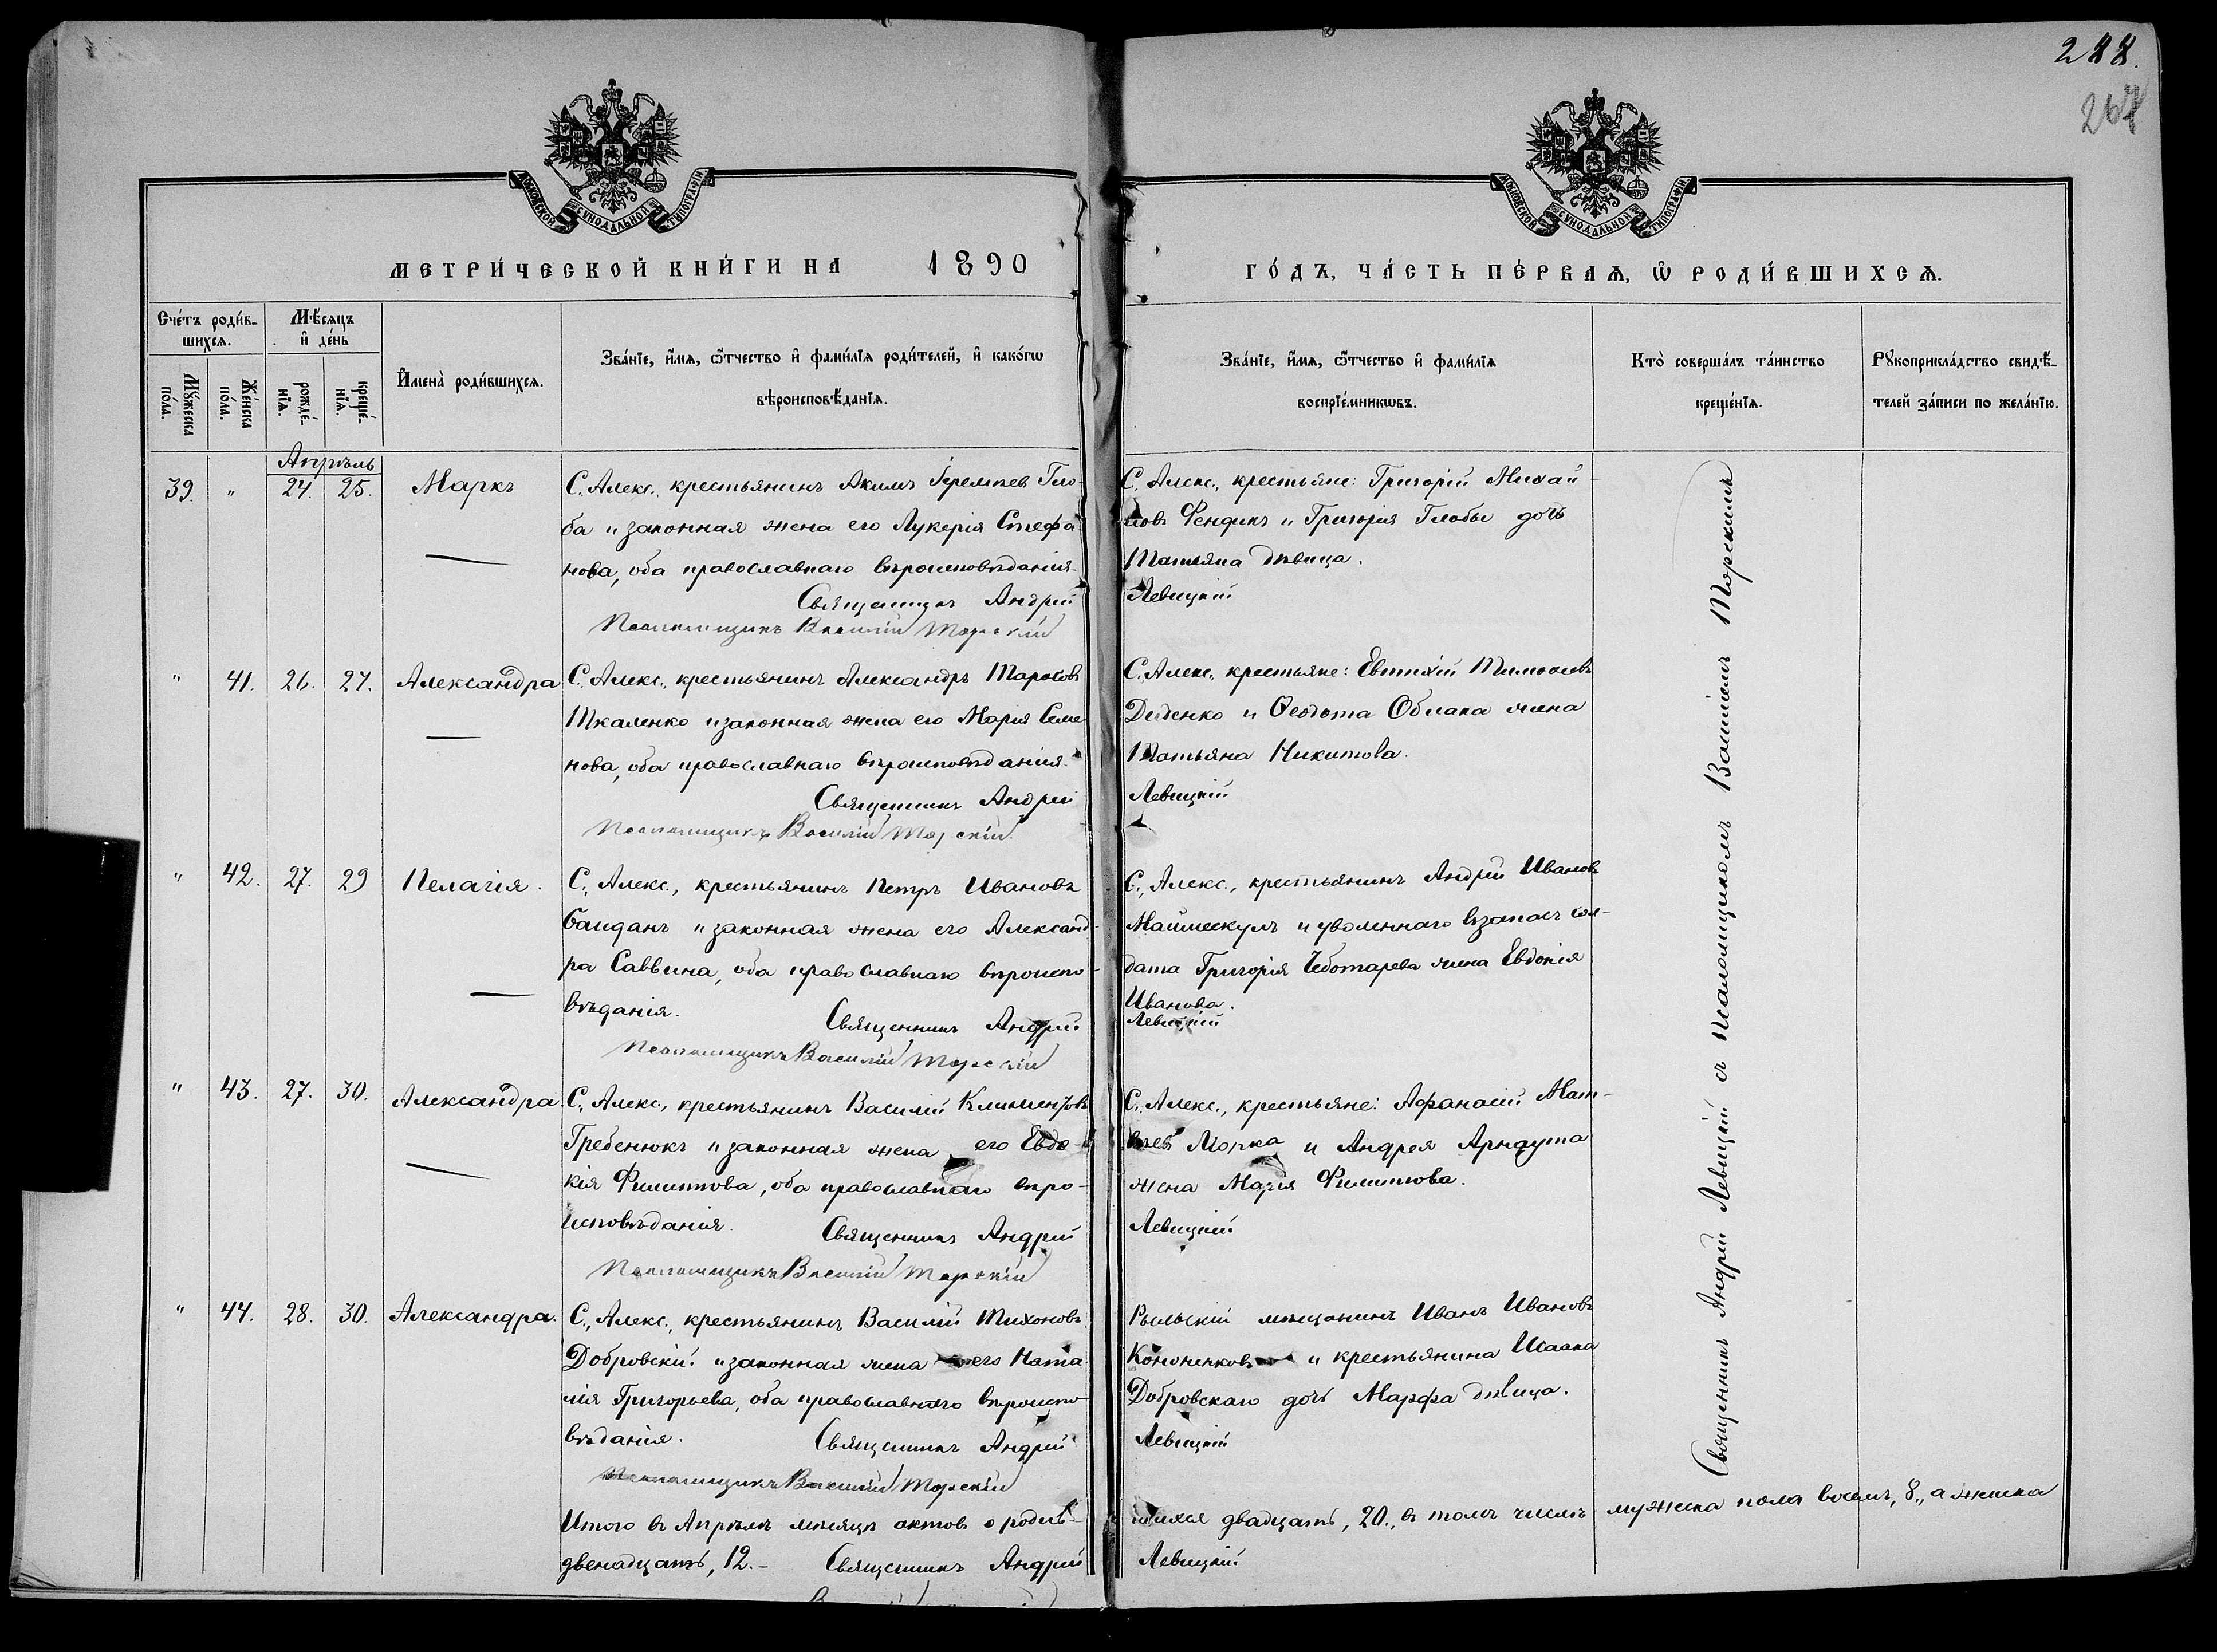 288.
267
МОСКОВСКОЙ СУНОДАЛЬНОЙ ТИПОГРАФІИ
МОСКОВСКОЙ СУНОДАЛЬНОЙ ТИПОГРАФІИ
МЕТРИ́ЧЕСКОЙ КНИ́ГИ НА 1890
ГО́ДЪ, ЧА́СТЬ ПЕ́РВАѦ, Ѡ РОДИ́ВШИХСѦ.
Сче́тъ роди́в-
шихсѧ.
Мѣ́сѧцъ
и҆ де́нь
Мꙋ́жеска по́ла.
Же́нска по́ла.
рожде́-нїѧ.
креще́-нїѧ.
И҆мена̀ роди́вшихсѧ.
Зва́нїе, и҆́мѧ, ѻ҆́тчество и҆ фами́лїѧ роди́телей, и҆ како́гѡ
вѣроисповѣ́данїѧ.
Зва́нїе, и҆́мѧ, ѻ҆́тчество и҆ фами́лїѧ
воспрїе́мникѡвъ.
Кто̀ соверша́лъ та́инство
креще́нїѧ.
Рꙋкоприкла́дство свидѣ́-
телей за́писи по жела́нїю.
Апрѣль
39. " 24. 25. Маркъ
С. Алекс., крестьянинъ Акимъ Іеремѣев Гло-
ба и законная жена его Лукерія Стефа-
нова, оба православнаго вѣроисповѣданія.
Священникъ Андрей
Псаломщикъ Василій Торскій
С. Алекс., крестьяне: Григорій Михай-
лов Фендикъ и Григорія Глобы дочь
Татьяна дѣвица.
Левицкій
" 41. 26. 27. Александра
С. Алекс., крестьянинъ Александръ Тарасовъ
Ткаленко и законная жена его Марія Семе-
нова, оба православнаго вѣроисповѣданія.
Священникъ Андрей
Псаломщикъ Василій Торскій
С. Алекс., крестьяне: Евтихій Тимоѳеевъ
Диденко и Ѳеодота Облака жена
Татьяна Никитова.
Левицкій
" 42. 27. 29 Пелагія.
С., Алекс., крестьянинъ Петръ Ивановъ
Банданъ и законная жена его Александ-
ра Саввина, оба православнаго вѣроиспо-
вѣданія.
Священникъ Андрей
Псаломщикъ Василій Торскій
С., Алекс., крестьянинъ Андрей Иванов
Маймескулъ и уволеннаго взапасъ сол-
дата Григорія Чеботарева жена Евдокія
Иванова.
Левицкій
" 43. 27. 30. Александра
С., Алекс., крестьянинъ Василій Климентовъ
Гребенюкъ и законная жена его Евдо-
кія Филиппова, оба православнаго вѣро-
исповѣданія.
Священникъ Андрей
Псаломщикъ Василій Торскій
С., Алекс., крестьяне: Афанасій Мат-
вѣев и Андрея Арнаута
жена Марія Филиппова.
Левицкій
" 44. 28. 30. Александра.
С., Алекс., крестьянинъ Василій Тихоновъ
Добровскій и законная жена его Ната-
лія Григорьева, оба православнаго вѣроиспо-
вѣданія.
Священникъ Андрей
Псаломщикъ Василій Торскій
Рыльскій мѣщанинъ Иванъ Ивановъ
Кононенковъ и крестьянина Исаака
Добровскаго дочь Марфа дѣвица.
Левицкій
Священникъ Андрей Левицкій съ псаломщикомъ Василіемъ Торскимъ
Итого въ Апрѣлѣ мѣсяцѣ актов о родив-
шихся двадцать, 20., в томъ числѣ мужеска пола восемь, 8., а женска
двенадцать, 12.- Священникъ Андрей
Левицкій